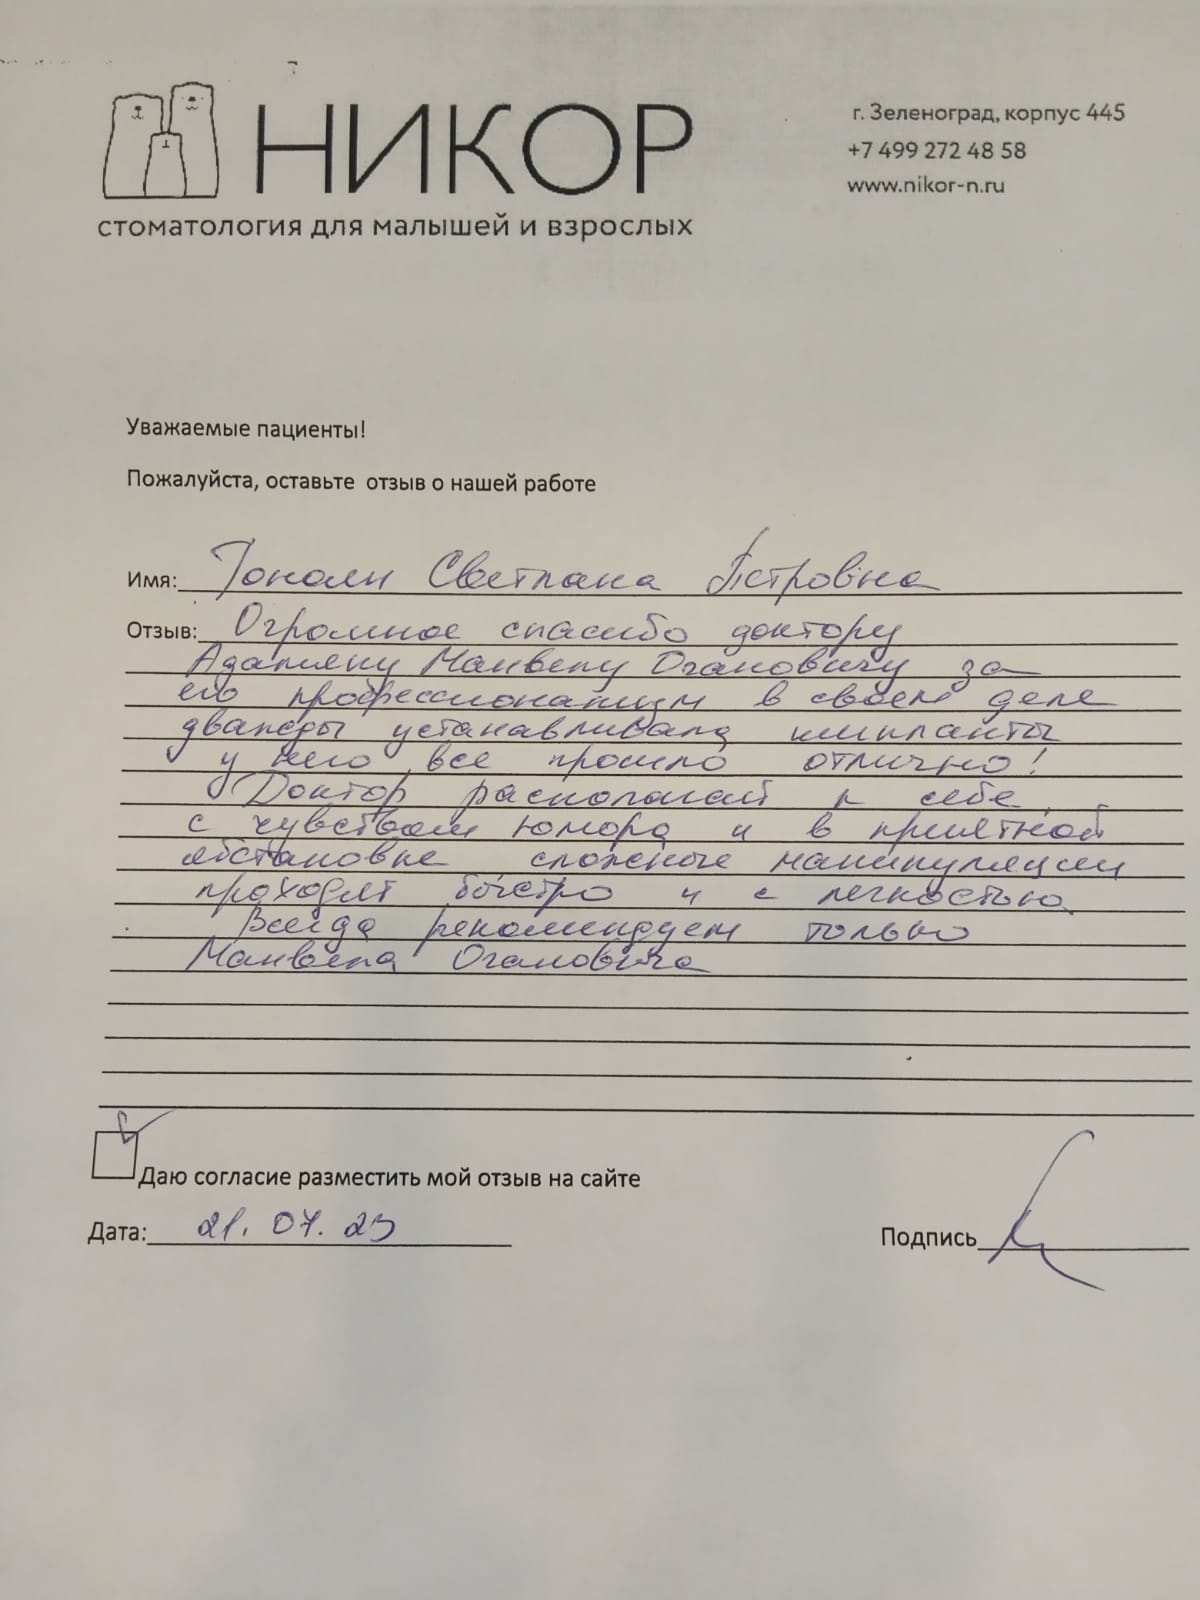 НИКОР
стоматология для малышей и взрослых
г. Зеленоград, корпус 445
+7 499 272 48 58
www.nikor-n.ru
Уважаемые пациенты!
Пожалуйста, оставьте отзыв о нашей работе
Имя: Светлана Петровна
Отзыв: Огромное спасибо доктору
Адамяну Манвелу Огановичу за
его профессионализм в своем деле
дважды устанавливала импланты
у него все прошло отлично!
Доктор располагает к себе,
с чувством юмора и в приятной
обстановке сложные манипуляции
проходят быстро и с легкостью
Всегда рекомендуем только
Манвела Огановича
Даю согласие разместить мой отзыв на сайте
Дата: 21.07.23
Подпись